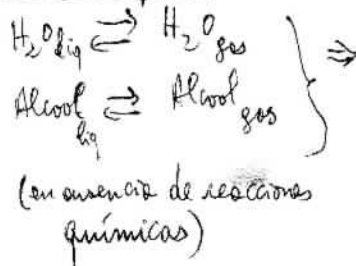 H₂O liq ⇌ H₂O gas
Alcool liq ⇌ Alcool gas } ⇒
(en ausencia de reacciones
químicas)